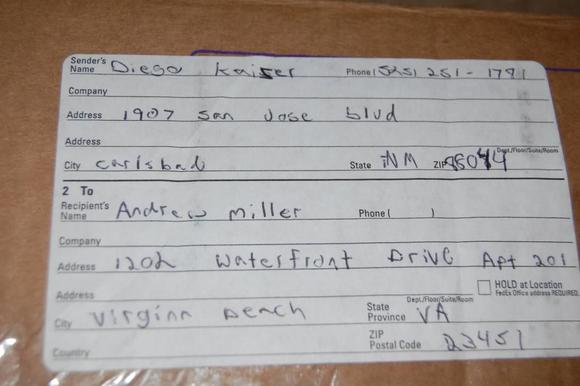 Sender's Name Diego Kaiser Phone ( 575) 251 - 1791
Company
Address 1907 San Jose blvd
Address Dept./Floor/Suite/Room
City Carlsbad State NM ZIP
2 To
Recipient's Name Andrew Miller Phone ( )
Company
Address 1202 Waterfront Drive Apt 201
HOLD at Location
Address Dept./Floor/Suite/Room FedEx Office address REQUIRED.
City Virginia Beach State Province VA
Country ZIP Postal Code 23451